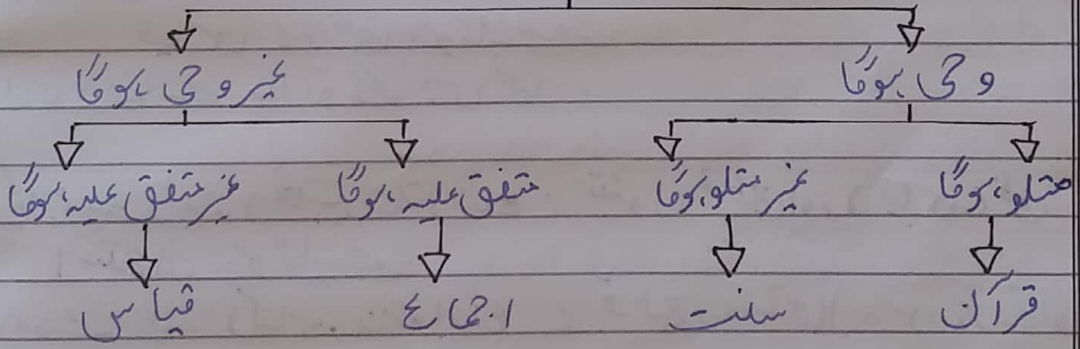 وحی ہوگا غیر وحی ہوگا
متلو ہوگا غیر متلو ہوگا متفق علیہ ہوگا غیر متفق علیہ ہوگا
قرآن سنت اجماع قیاس